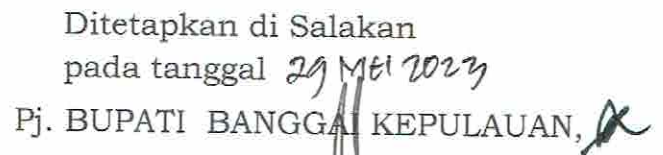 Ditetapkan di Salakan
pada tanggal 29 MEI 2023
Pj. BUPATI BANGGAI KEPULAUAN,